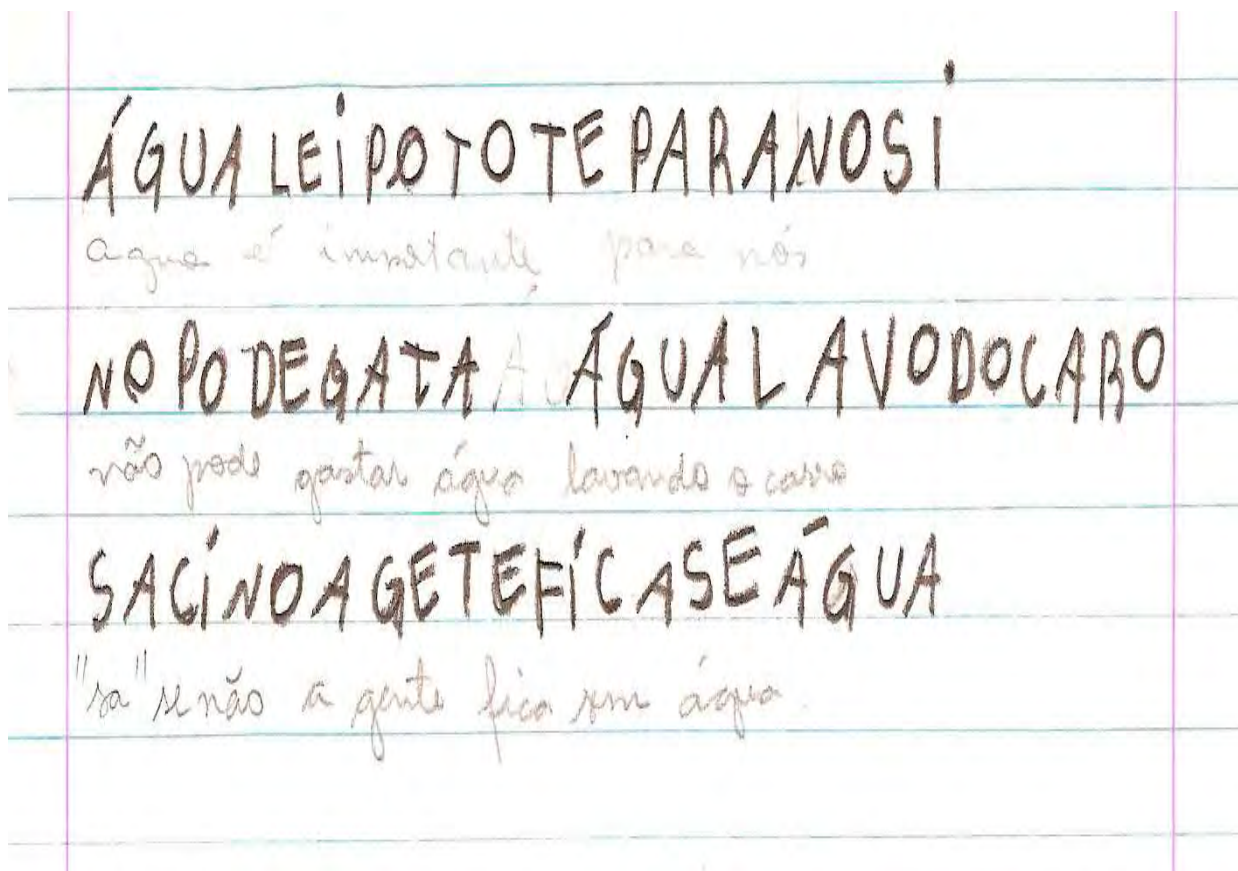 ÁGUA LEIPOTOTE PARANOSI
agua é impotante para nós
NO PODEGATA ÁGUAL AVODOCARO
não pode gastar água lavando o carro
SACINOAGETEFICASEÁGUA
"sa" se não a gente fica sem água.